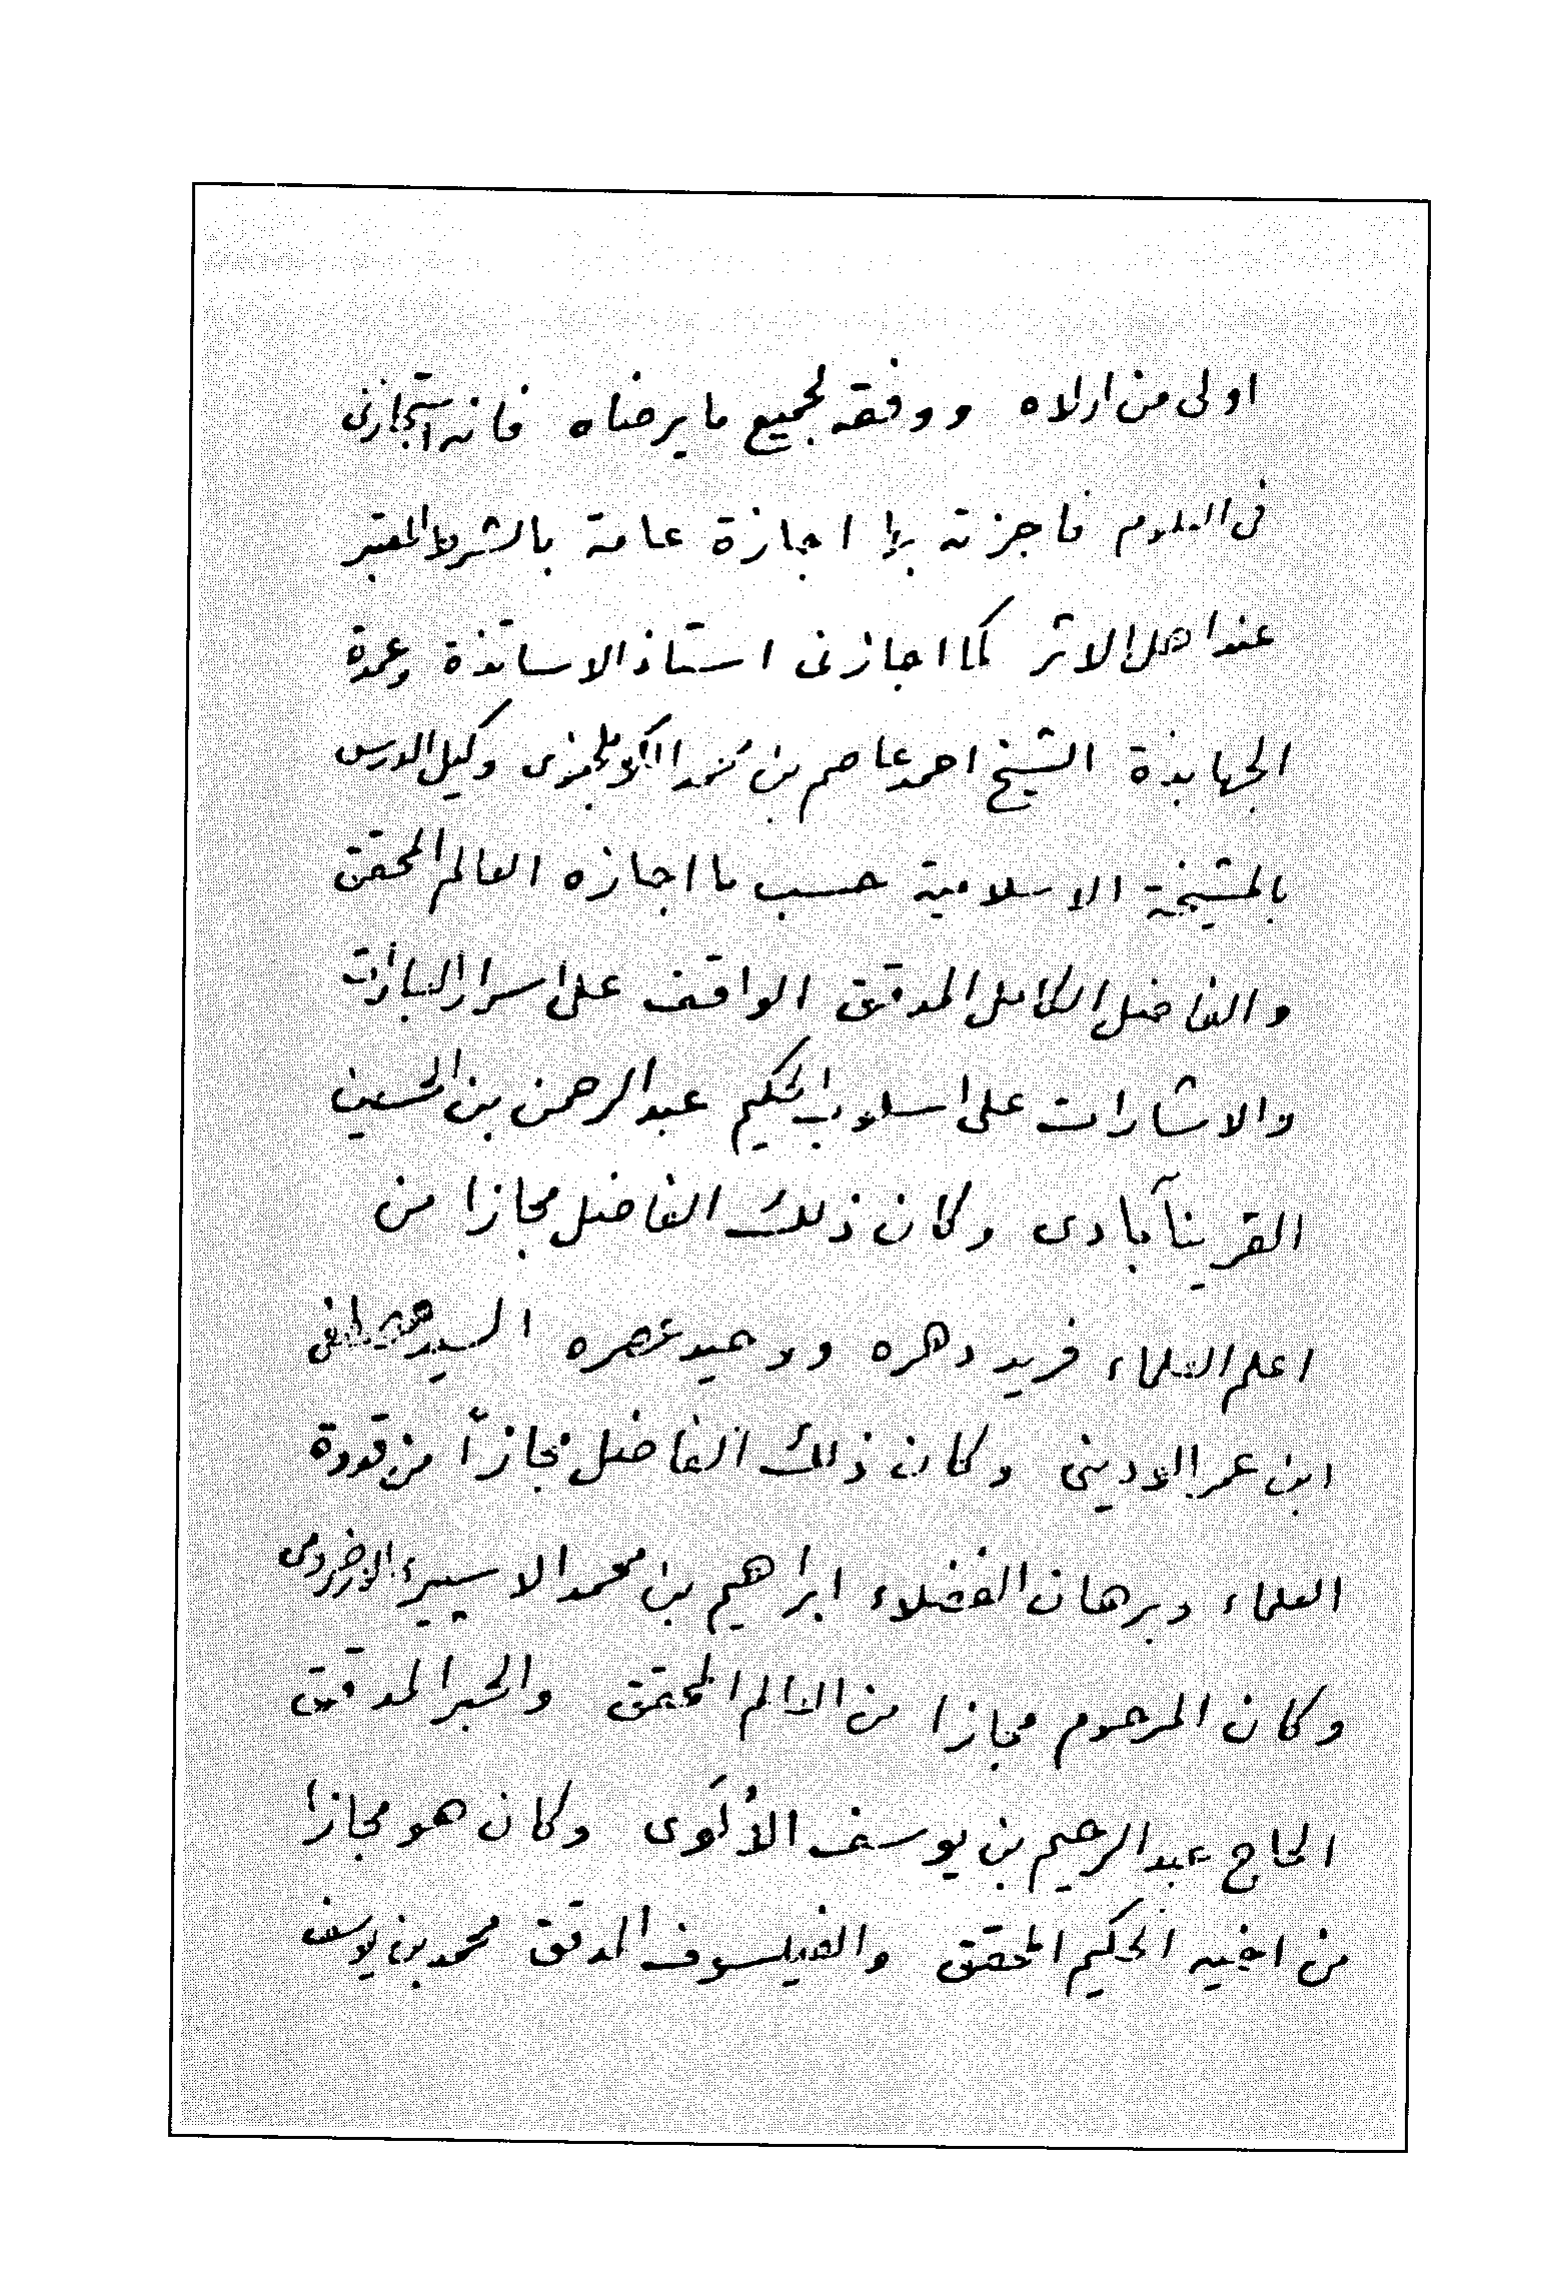 اولى من اولاه ووفقه لجميع ما يرضاه فانه استجازنى
فى العلوم فاجزته بها اجازة عامة بالشرط المعتبر
عند اهل الاثر كما اجازنى استاذ الاساتذة وعمدة
الجهابذة الشيخ احمد عاصم بن محمد الكوملجنوى وكيل الدرس
بالمشيخة الاسلامية حسب ما اجازه العالم المحقق
والفاضل الكامل المدقق الواقف على اسرار العبارات
والاشارات على اسلوب الحكيم عبد الرحمن بن الحسين
القرينآبادى وكان ذلك الفاضل مجازا من
اعلم العلماء فريد دهره ووحيد عصره السيد
ابن عمر الاودينى وكان ذلك الفاضل مجازاً من قدوة
العلماء وبرهان الفضلاء ابراهيم بن محمد الاسبيرى الارضرومى
وكان المرحوم مجازا من العالم المحقق والحبر المدقق
الحاج عبد الرحيم بن يوسف الأُلَوى وكان هو مجازا
من اخيه الحكيم المحقق والفيلسوف المدقق محمد بن يوسف